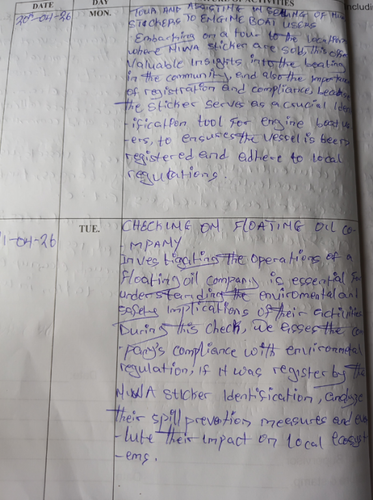 DATE DAY ACTIVITIES
20-04-26 MON. TOUR AND ASSISTING IN OF
STICKERS TO ENGINE BOAT USERS
Embarking on a tour to the location
where NIWA sticker are sold, this offer
Valuable Insights into the boating
in the community, and also the importance
of registration and compliance,
the sticker serves as a crucial Iden
-ification tool for engine boat us
-ers, to ensures the vessel is been
registered and adhere to local
regulations.
1-04-26 TUE. CHECKING ON FLOATING OIL CO-
-MPANY
Investigating the operations of a
floating oil company is essential for
understanding the enviromental and
safety implications of their activities
During this check, we asses the com
-pany's compliance with environmental
regulation, if it was register by the
NIWA sticker Identification, analyze
their spill prevention measures and eva
-lute their impact on local ecosyst
-ems.